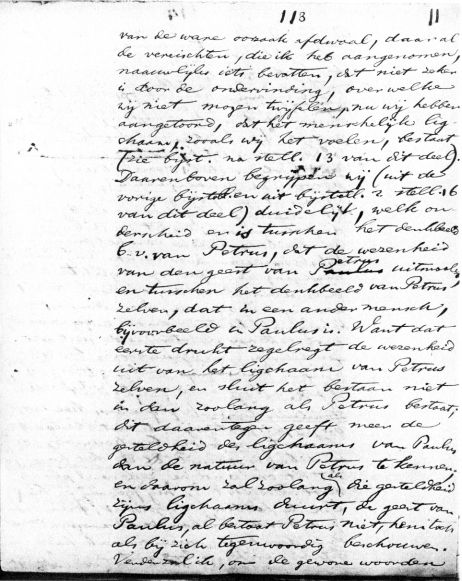 118 11
van de ware oozaak afdwaal, daar al
de vereischten, die ik heb aangenomen,
naauwlijks iets bevatten, dat niet zeker
is door de ondervinding, over welke
wij niet mogen twijfelen, nu wij hebben
aangetoond, dat het menschelijk lig-
chaam, zooals wij het voelen, bestaat
(zie bijst. na stell. 13 van dit deel).
Daarenboven begrijpen wij (uit de
vorige bijstell. en uit bijstell. 2 stell. 16
van dit deel) duidelijk, welk on
derscheid en is tusschen het denkbeeld
b.v. van Petrus, dat de wezenheid
van den geest van Petrus uitmaakt,
en tusschen het denkbeeld van Petrus
zelven, dat in een ander mensch,
bijvoorbeeld in Paulus is. Want dat
eerste drukt regelregt de wezenheid
uit van het ligchaam van Petrus
zelven, en sluit het bestaan niet
in dan zoolang als Petrus bestaat;
dit daarentegen geeft meer de
gesteldheid des ligchaams van Paulus
dan de natuur van Petrus te kennen
en daarom zal zoolang als die gesteldheid
zijns ligchaams duurt, de geest van
Paulus, al bestaat Petrus niet, hem toch
als bij zich tegenwoordig beschouwen.
Verder zal ik, om de gewone woorden